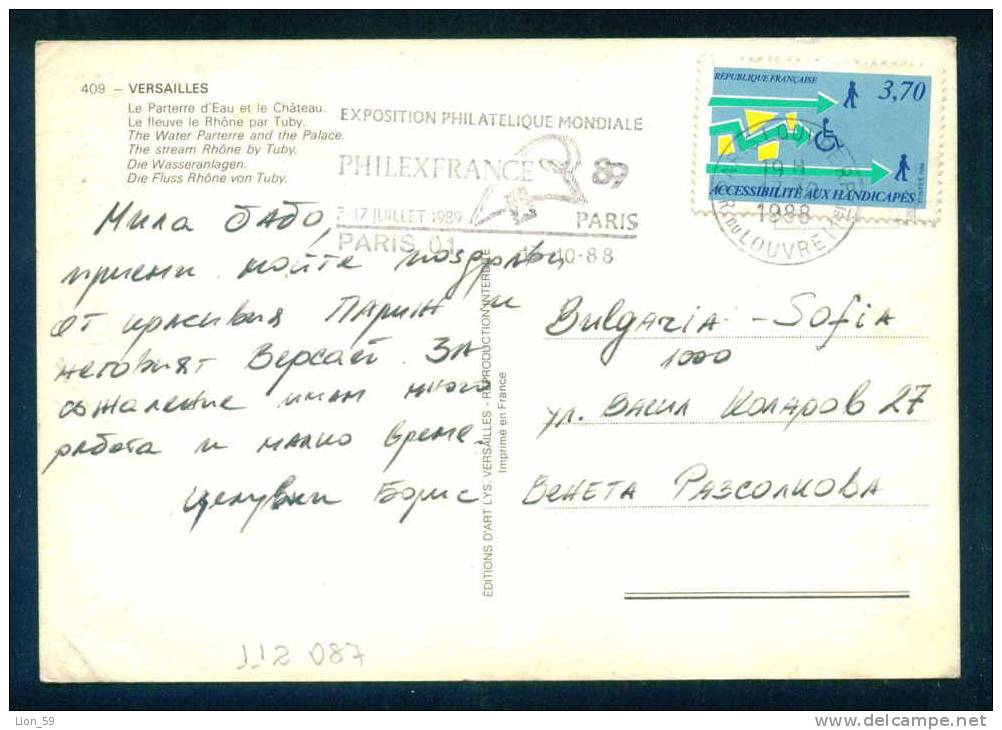 409 – VERSAILLES
Le Parterre d'Eau et le Château.
Le fleuve le Rhône par Tuby.
The Water Parterre and the Palace.
The stream Rhône by Tuby.
Die Wasseranlagen.
Die Fluss Rhône von Tuby.
EXPOSITION PHILATELIQUE MONDIALE
PHILEXFRANCE 89
7-17 JUILLET 1989 PARIS
PARIS 01 10-88
RÉPUBLIQUE FRANÇAISE
3,70
ACCESSIBILITÉ AUX HANDICAPÉS
19 H
1988
R. DU LOUVRE
Мила бабо,
приеми моите поздрави
от красивия Париж и
неговият Версай. За
съжаление имам много
работа и малко време.
Целувки Борис
Bulgaria - Sofia
1000
ул. Васил Коларов 27
Венета Разсолкова
ÉDITIONS D'ART LYS. VERSAILLES - REPRODUCTION INTERDITE
Imprimé en France
112 087
Lion_59
www.delcampe.net